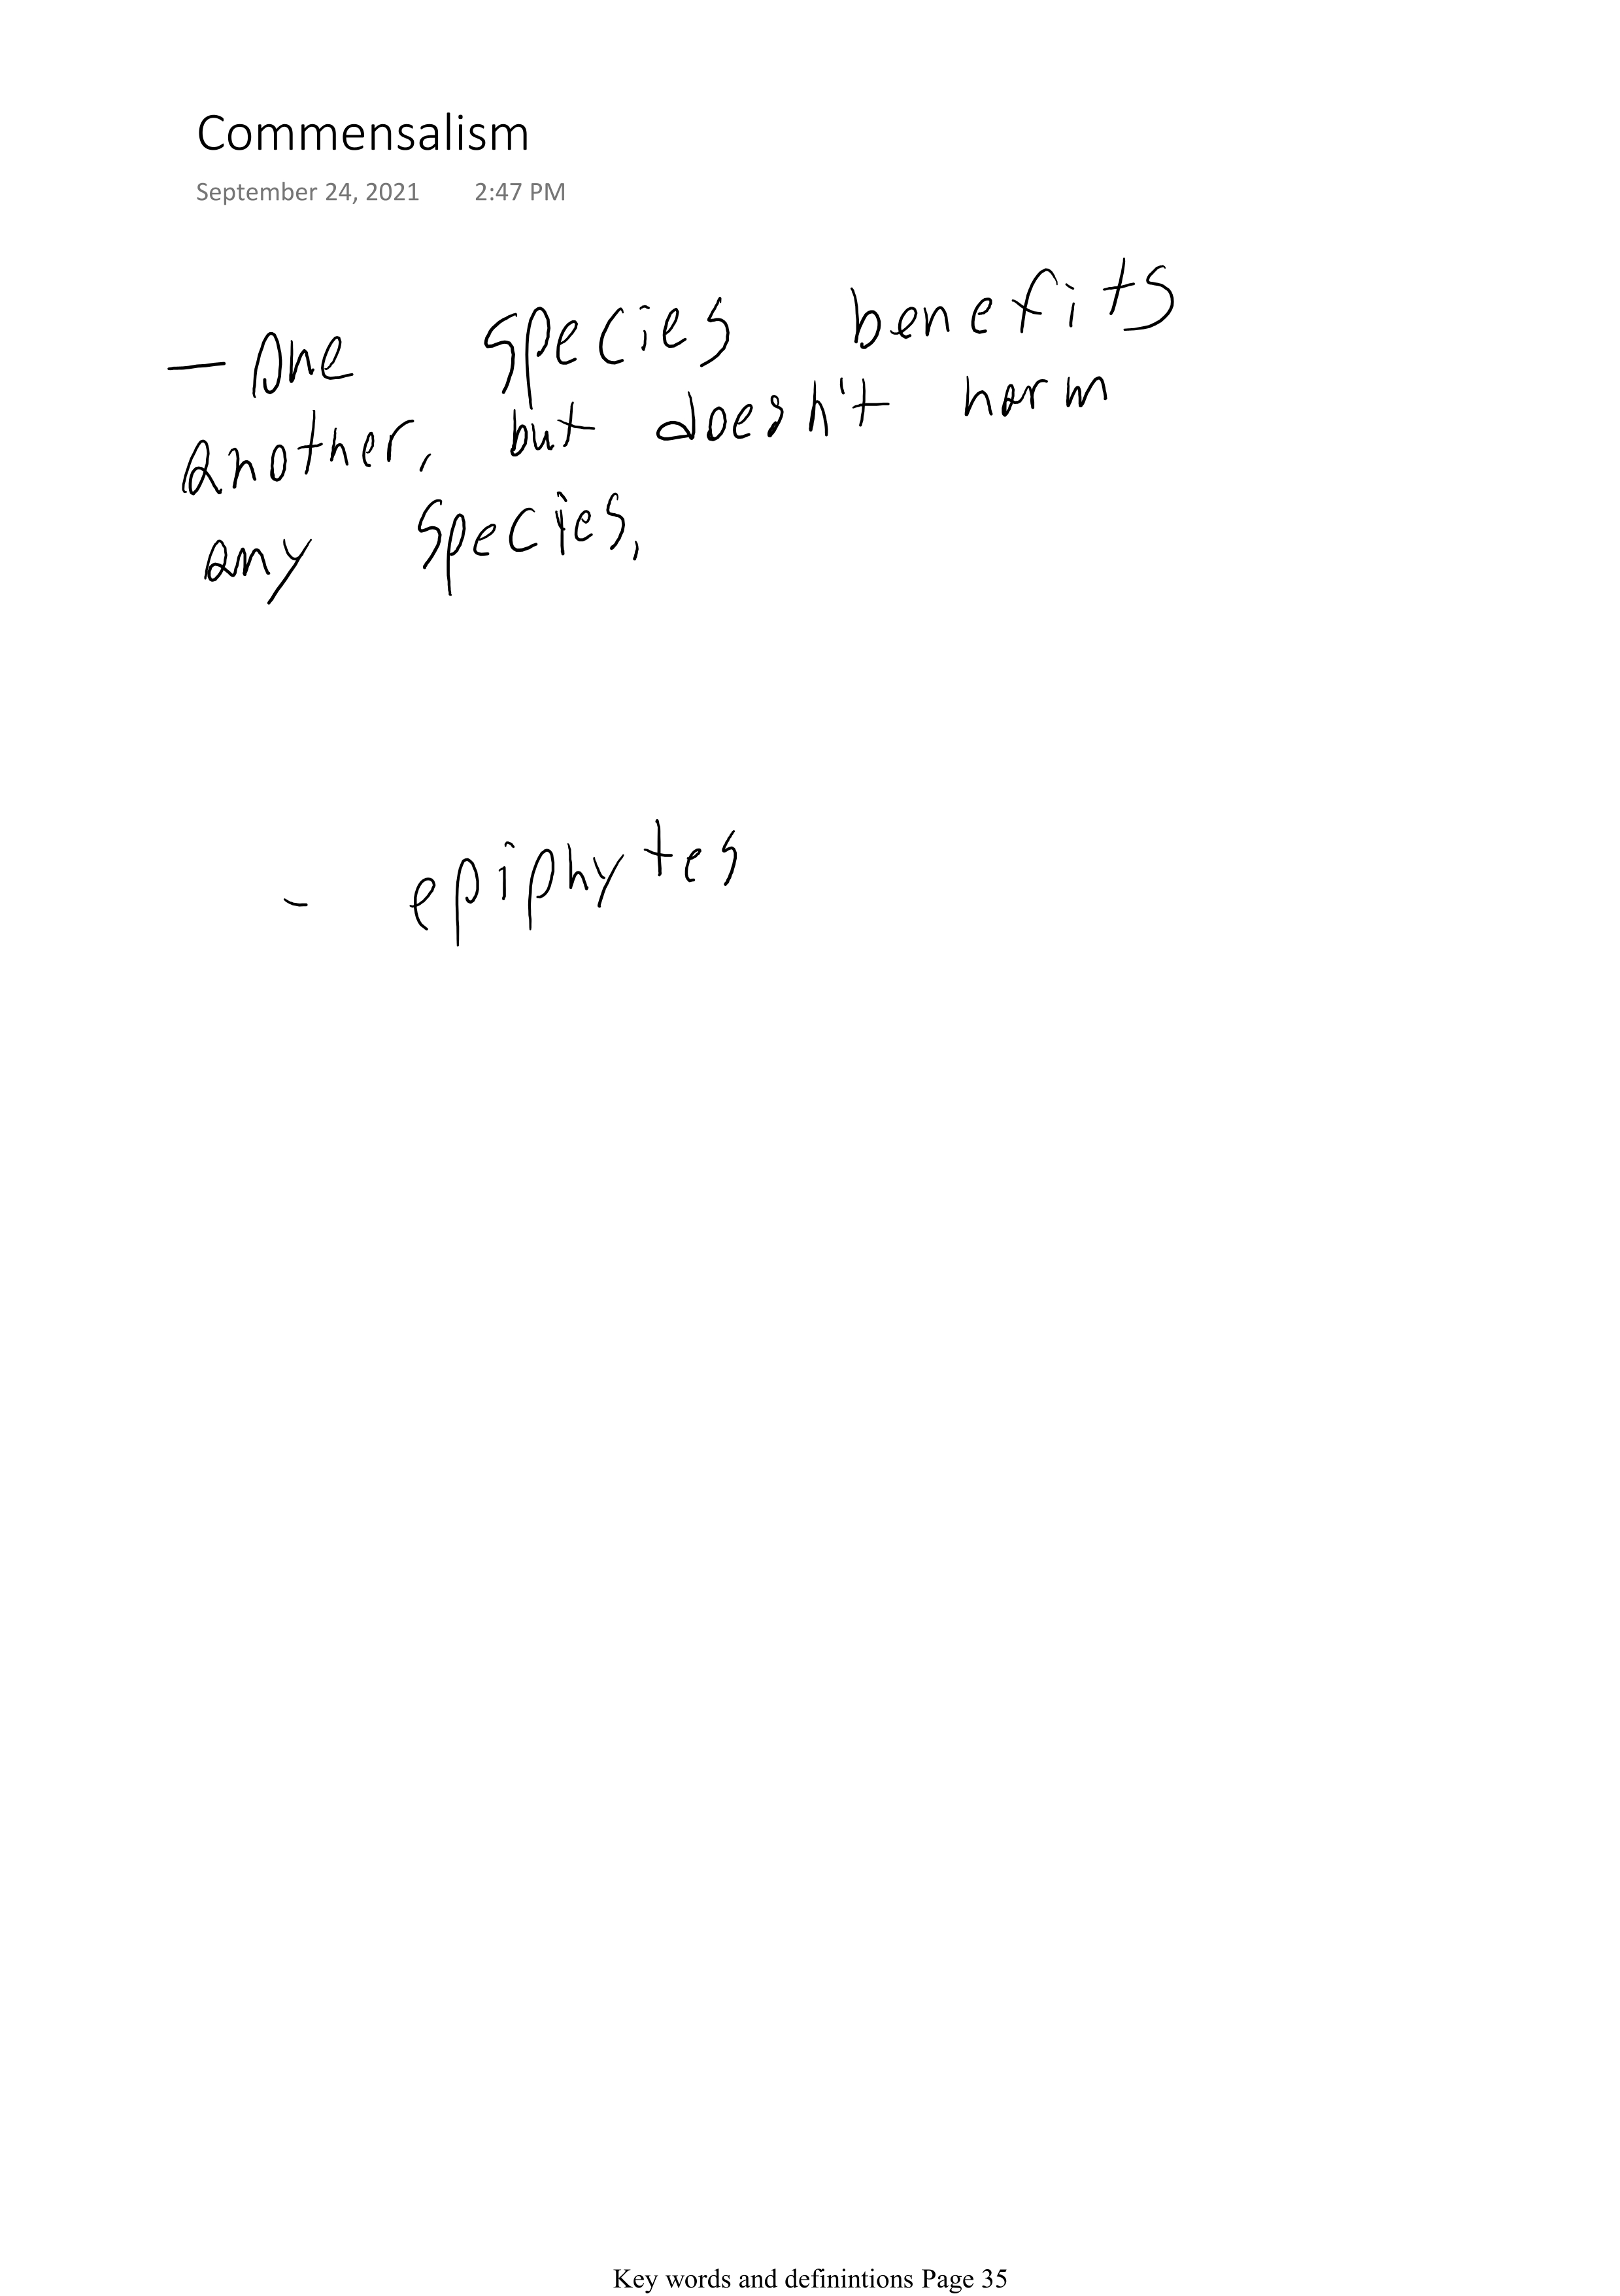 Commensalism
September 24, 2021 2:47 PM
- One species benefits
another, but doesn't harm
any species.
- epiphytes
Key words and definintions Page 35